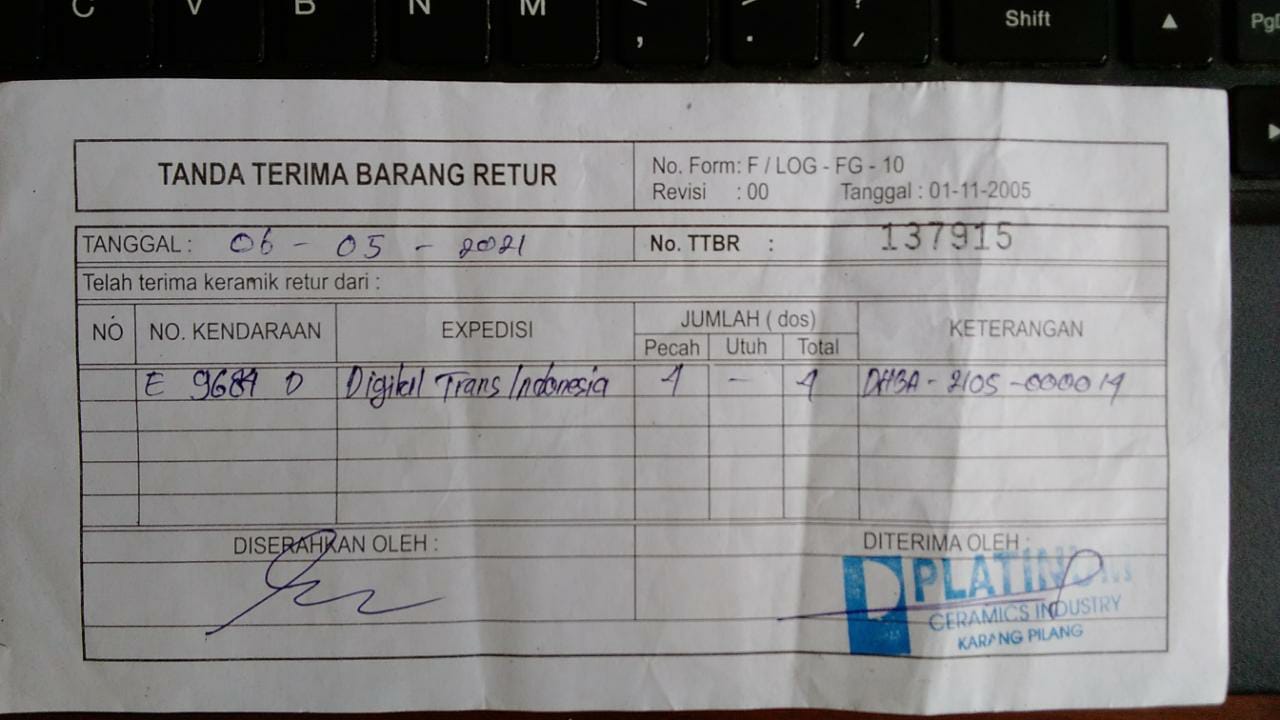 C V B N M < > ? Shift ▲ PgD
, . /
TANDA TERIMA BARANG RETUR
No. Form: F / LOG - FG - 10
Revisi : 00 Tanggal : 01-11-2005
TANGGAL : 06 - 05 - 2021
No. TTBR : 137915
Telah terima keramik retur dari :
NO NO. KENDARAAN EXPEDISI JUMLAH ( dos) KETERANGAN
Pecah Utuh Total
E D Digital Trans Indonesia 1 - 1
DISERAHKAN OLEH : DITERIMA OLEH :
PLATINUM
CERAMICS INDUSTRY
KARANG PILANG